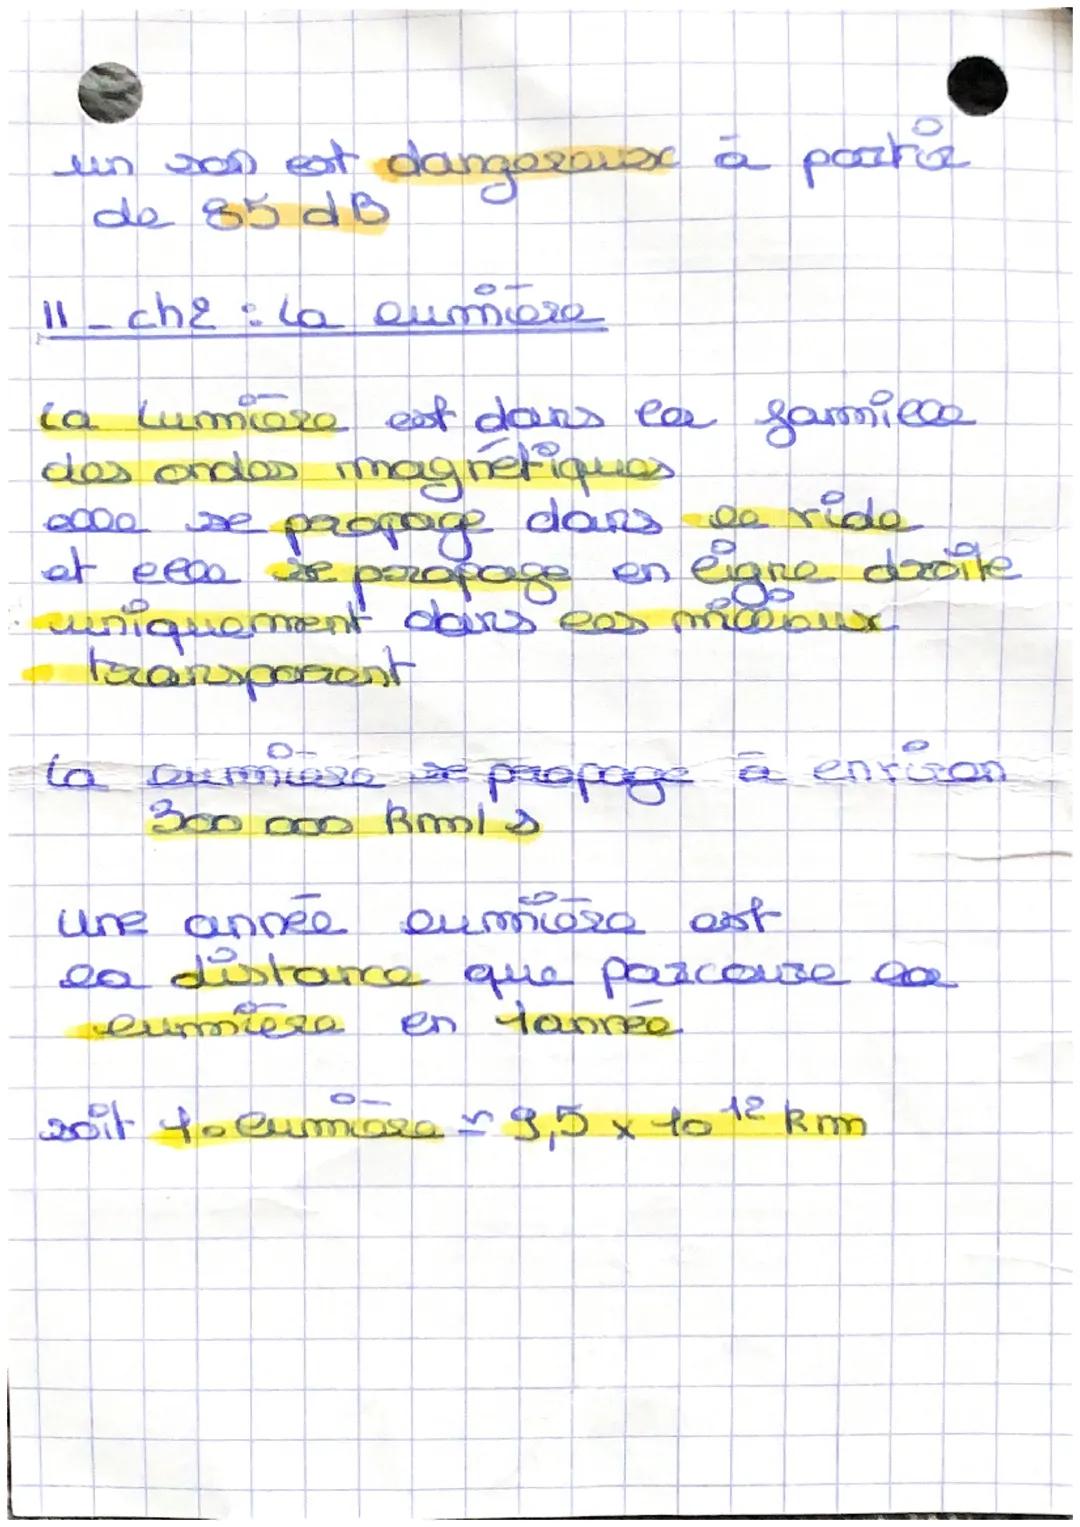 un son est dangereux à partir
de 85 dB
II - ch2 : la lumière
la lumière est dans la famille
des ondes magnétiques
elle se propage dans le vide
et elle se propage en ligne droite
uniquement dans les milieux
transparent
la lumière se propage à environ
300 000 km/s
une année lumière est
la distance que parcoure la
lumière en 1 année
soit 1a lumière ≃ 9,5 x 10¹² km